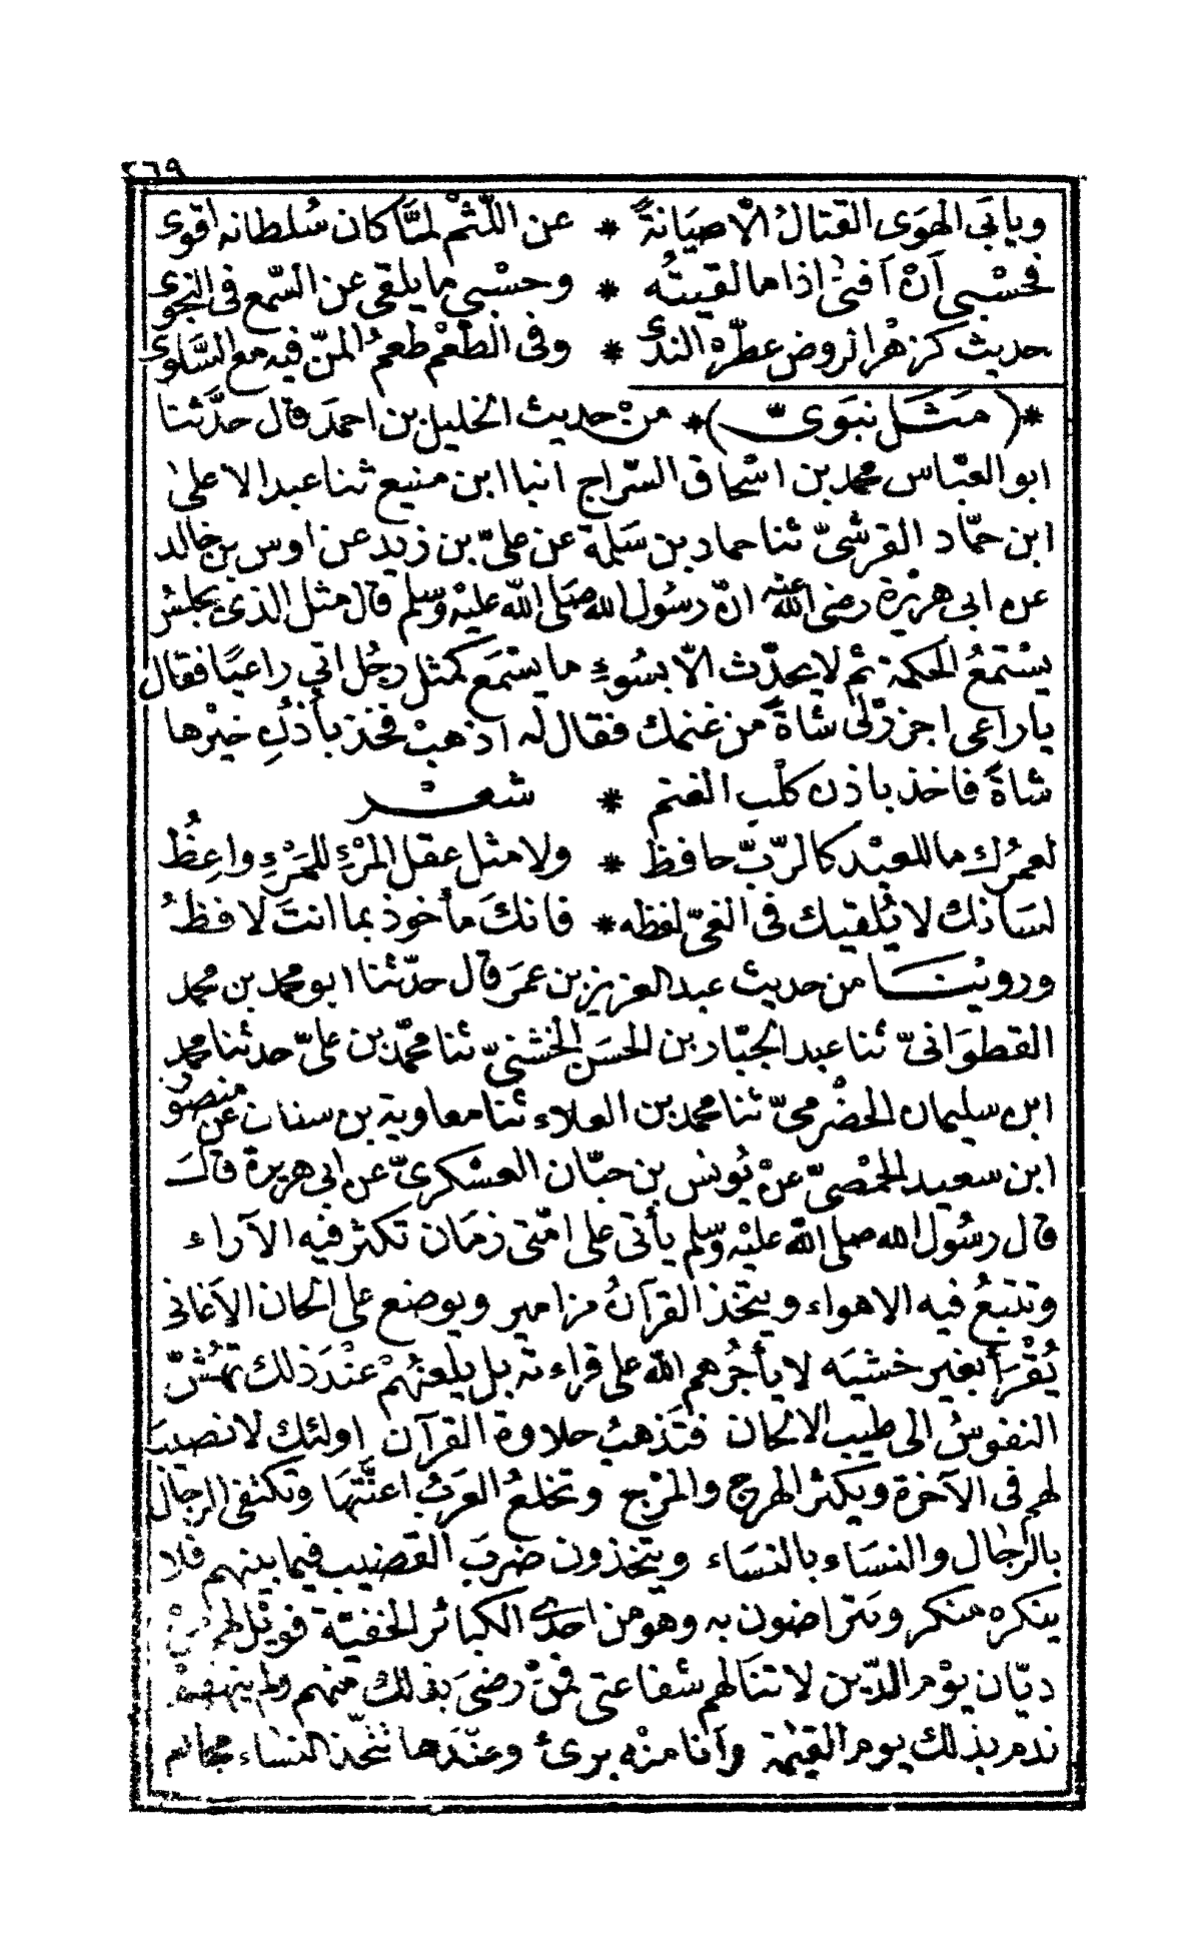 ٢٦٩
ويأبَى الهَوَى القتالُ الّاصِيَانةً * عن اللّثْمِ لمّا كان سُلطانه اقوى
فحسْبى آن آفنى اذا ما لقيتُه * وحسْبي ما يلقى عن السّمع فى النجوى
حديث كزهْر الروض عطّره الندى * وفى الطعْم طعمُ المنّ فيه مع السَّلوى
*( مَثَل نبَوىّ )* من حديث الخليل بن احمَد قال حدَّثنا
ابو العبّاس محمد بن اسْحاق السّراج انبا ابن منيع ثنا عبد الاعلىٰ
ابن حمّاد القرشىّ ثنا حماد بن سَلمة عن علىّ بن زيد عن اوس بن خالد
عن ابى هريْرة رضى الله عنه انّ رسُول الله صَلى الله عليْه وسلم قال مثل الذى يجلسُ
يسْتمعُ الحكمة ثم لا يحدّث الّا بسُوءِ ما يستمَع كمثل رجُل اتي راعيًا فقال
يا راعى اجزرْلى شاةً من غنمك فقال له اذهبْ فخذ بأذنِ خيْرها
شاةً فاخذ باذن كلْب الغنم * شعر
لعمرُك ما للعبْد كالرّبّ حافظ * ولا مثل عقل المرْءِ للمَرْءِ واعِظُ
لسَانك لا يُلقيك فى الغىّ لفظه * فانكَ مأخوذ بما انتَ لافظُ
وروينا من حديث عبد العزيز بن عمَر قال حدّثنا ابو محمد بن محمد
القطوَانىّ ثنا عبد الجبّار بن الحسَن الخشنىّ ثنا محمّد بن علىّ حدثنا محمد
ابن سليمان الحضْرمىّ ثنا محمد بن العلاء ثنا معاوية بن سنان عن منصور
ابن سعيد الحمْصىّ عنْ يُونس بن حبّان العسْكرىّ عن ابي هريرة قالَ
قال رسُول الله صلى الله عليْه وسلم يأتى على امّتى زمَان تكثر فيه الآراء
وتتبعُ فيه الاهواء ويتخذ القرآنُ مزامير ويوضع على الحان الاَغانى
يُقْرَأ بغير خشيَه لا يأجُرهم الله على قراءته بل يلعنُهمْ عنْدَ ذلك تهُشّ
النفوسُ الى طيب الالحان فتَذهبُ حلاوة القرآن اولئك لا نصيبَ
لهم فى الآخرة ويكثر الهرج والمرْج وتخلعُ العرَبُ اعنَّتهَا وتكتفى الرجال
بالرّجال والنسَاء بالنسَاء ويتّخذون ضرْبَ القضيب فيما بينهم فلا
ينكره منكر ويَتراضون به وهو من احدى الكبائر الخفيّة فويْل لهم منْ
ديّان يوْم الدّين لا تنَالهم شفاعتى فمنْ رضىَ بذلك منهم ولم ينههمْ
ندم بذلك يوم القيٰمة وآنا منْه برئ وعنْدَها تتّخذ النسَاء مجالس